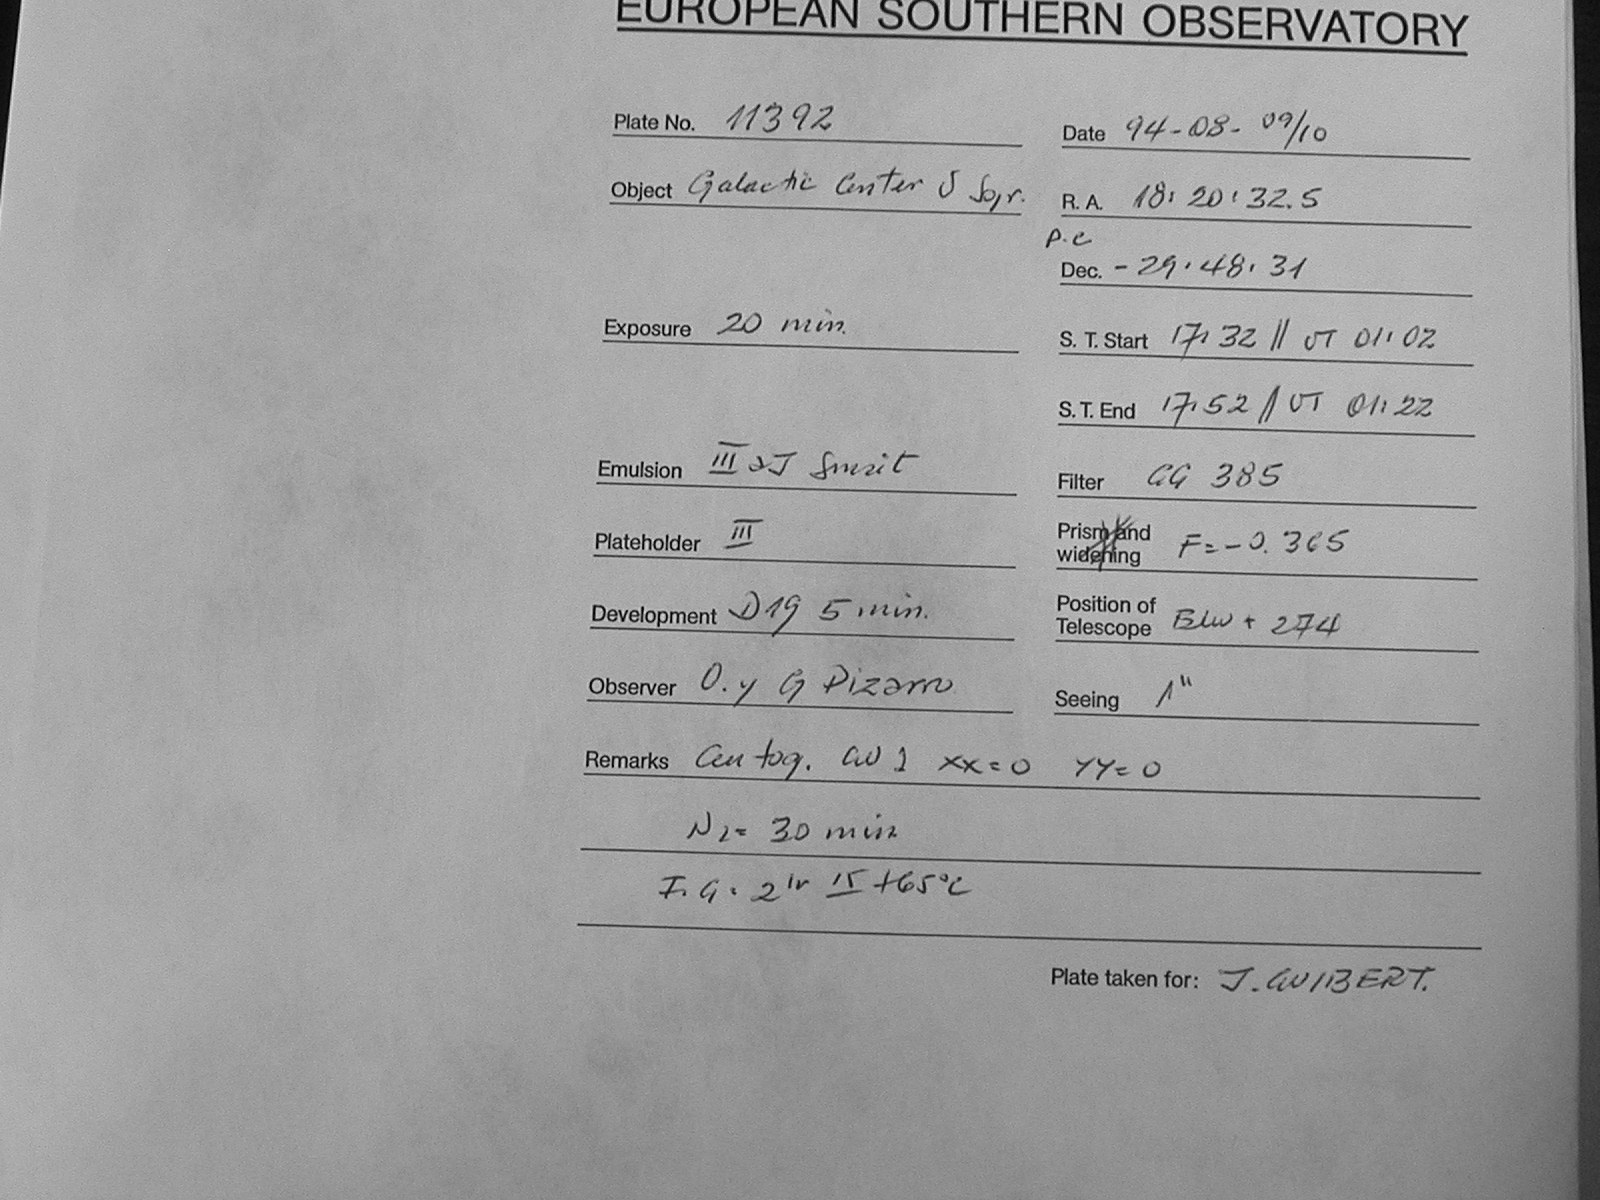 EUROPEAN SOUTHERN OBSERVATORY
Plate No. 11392
Date 94-08-09/10
Object Galactic Center
R. A. 18: 20: 32.5
Dec. -29.48.31
Exposure 20 min.
S. T. Start 17: 32 // UT 01: 02
S. T. End 17:52 // UT 01: 22
Emulsion III aJ
Filter GG 385
Plateholder III
Prism and
widening F= -0.365
Development D19 5 min.
Position of
Telescope + 274
Observer O. y G Pizarro
Seeing 1"
Remarks XX=0 YY=0
N2= 30 min
+65°C
Plate taken for: J. GUIBERT.